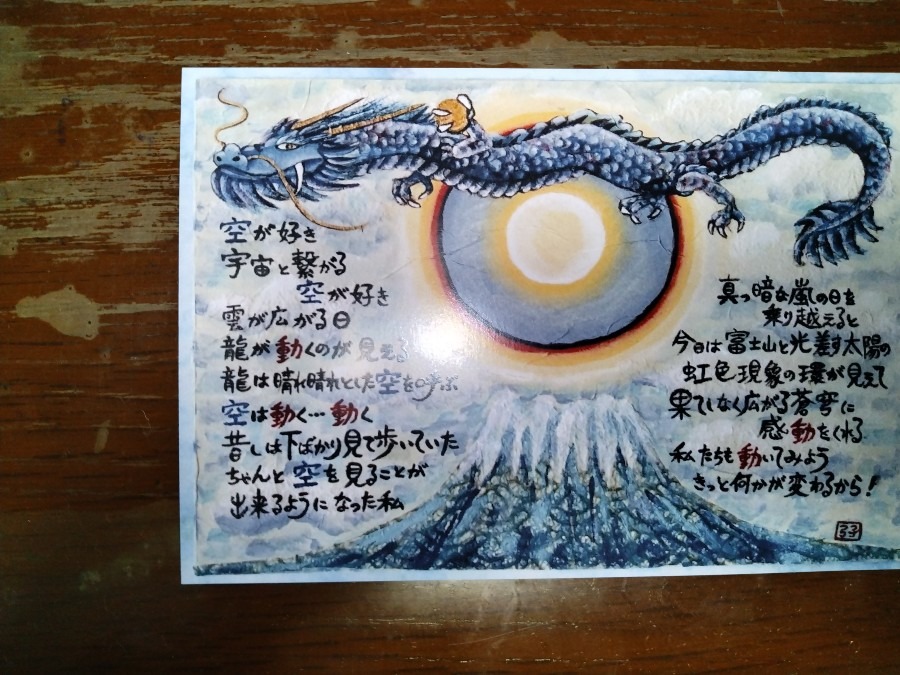 空が好き
宇宙と繋がる
空が好き
雲が広がる日
龍が動くのが見える
龍は晴れ晴れとした空を呼ぶ
空は動く…動く
昔しは下ばかり見て歩いていた
ちゃんと空を見ることが
出来るようになった私
真っ暗な嵐の日を
乗り越えると
今日は富士山と光差す太陽の
虹色現象の環が見えて
果てしなく広がる蒼穹に
感動をくれる
私たちも動いてみよう
きっと何かが変わるから!